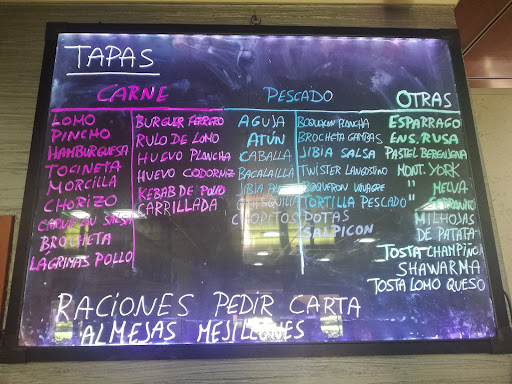 TAPAS
CARNE
LOMO
PINCHO
HAMBURGUESA
TOCINETA
MORCILLA
CHORIZO
CARNE EN SALSA
BROCHETA
LÁGRIMAS POLLO
BURGUER FERRERO
RULO DE LOMO
HUEVO PLANCHA
HUEVO CODORNIZ
KEBAB DE POLLO
CARRILLADA
PESCADO
AGUJA
ATÚN
CABALLA
BACALAILLA
JIBIA
CHOPITOS
BOQUERON PLANCHA
BROCHETA GAMBAS
JIBIA SALSA
TWISTER LANGOSTINO
BOQUERON VINAGRE
TORTILLA PESCADO
POTAS
SALPICON
OTRAS
ESPARRAGO
ENS. RUSA
PASTEL BERENJENA
MONT. YORK
" MELVA
" SERRANO
MILHOJAS
DE PATATA
TOSTA CHAMPIÑON
SHAWARMA
TOSTA LOMO QUESO
RACIONES PEDIR CARTA
ALMEJAS MEJILLONES